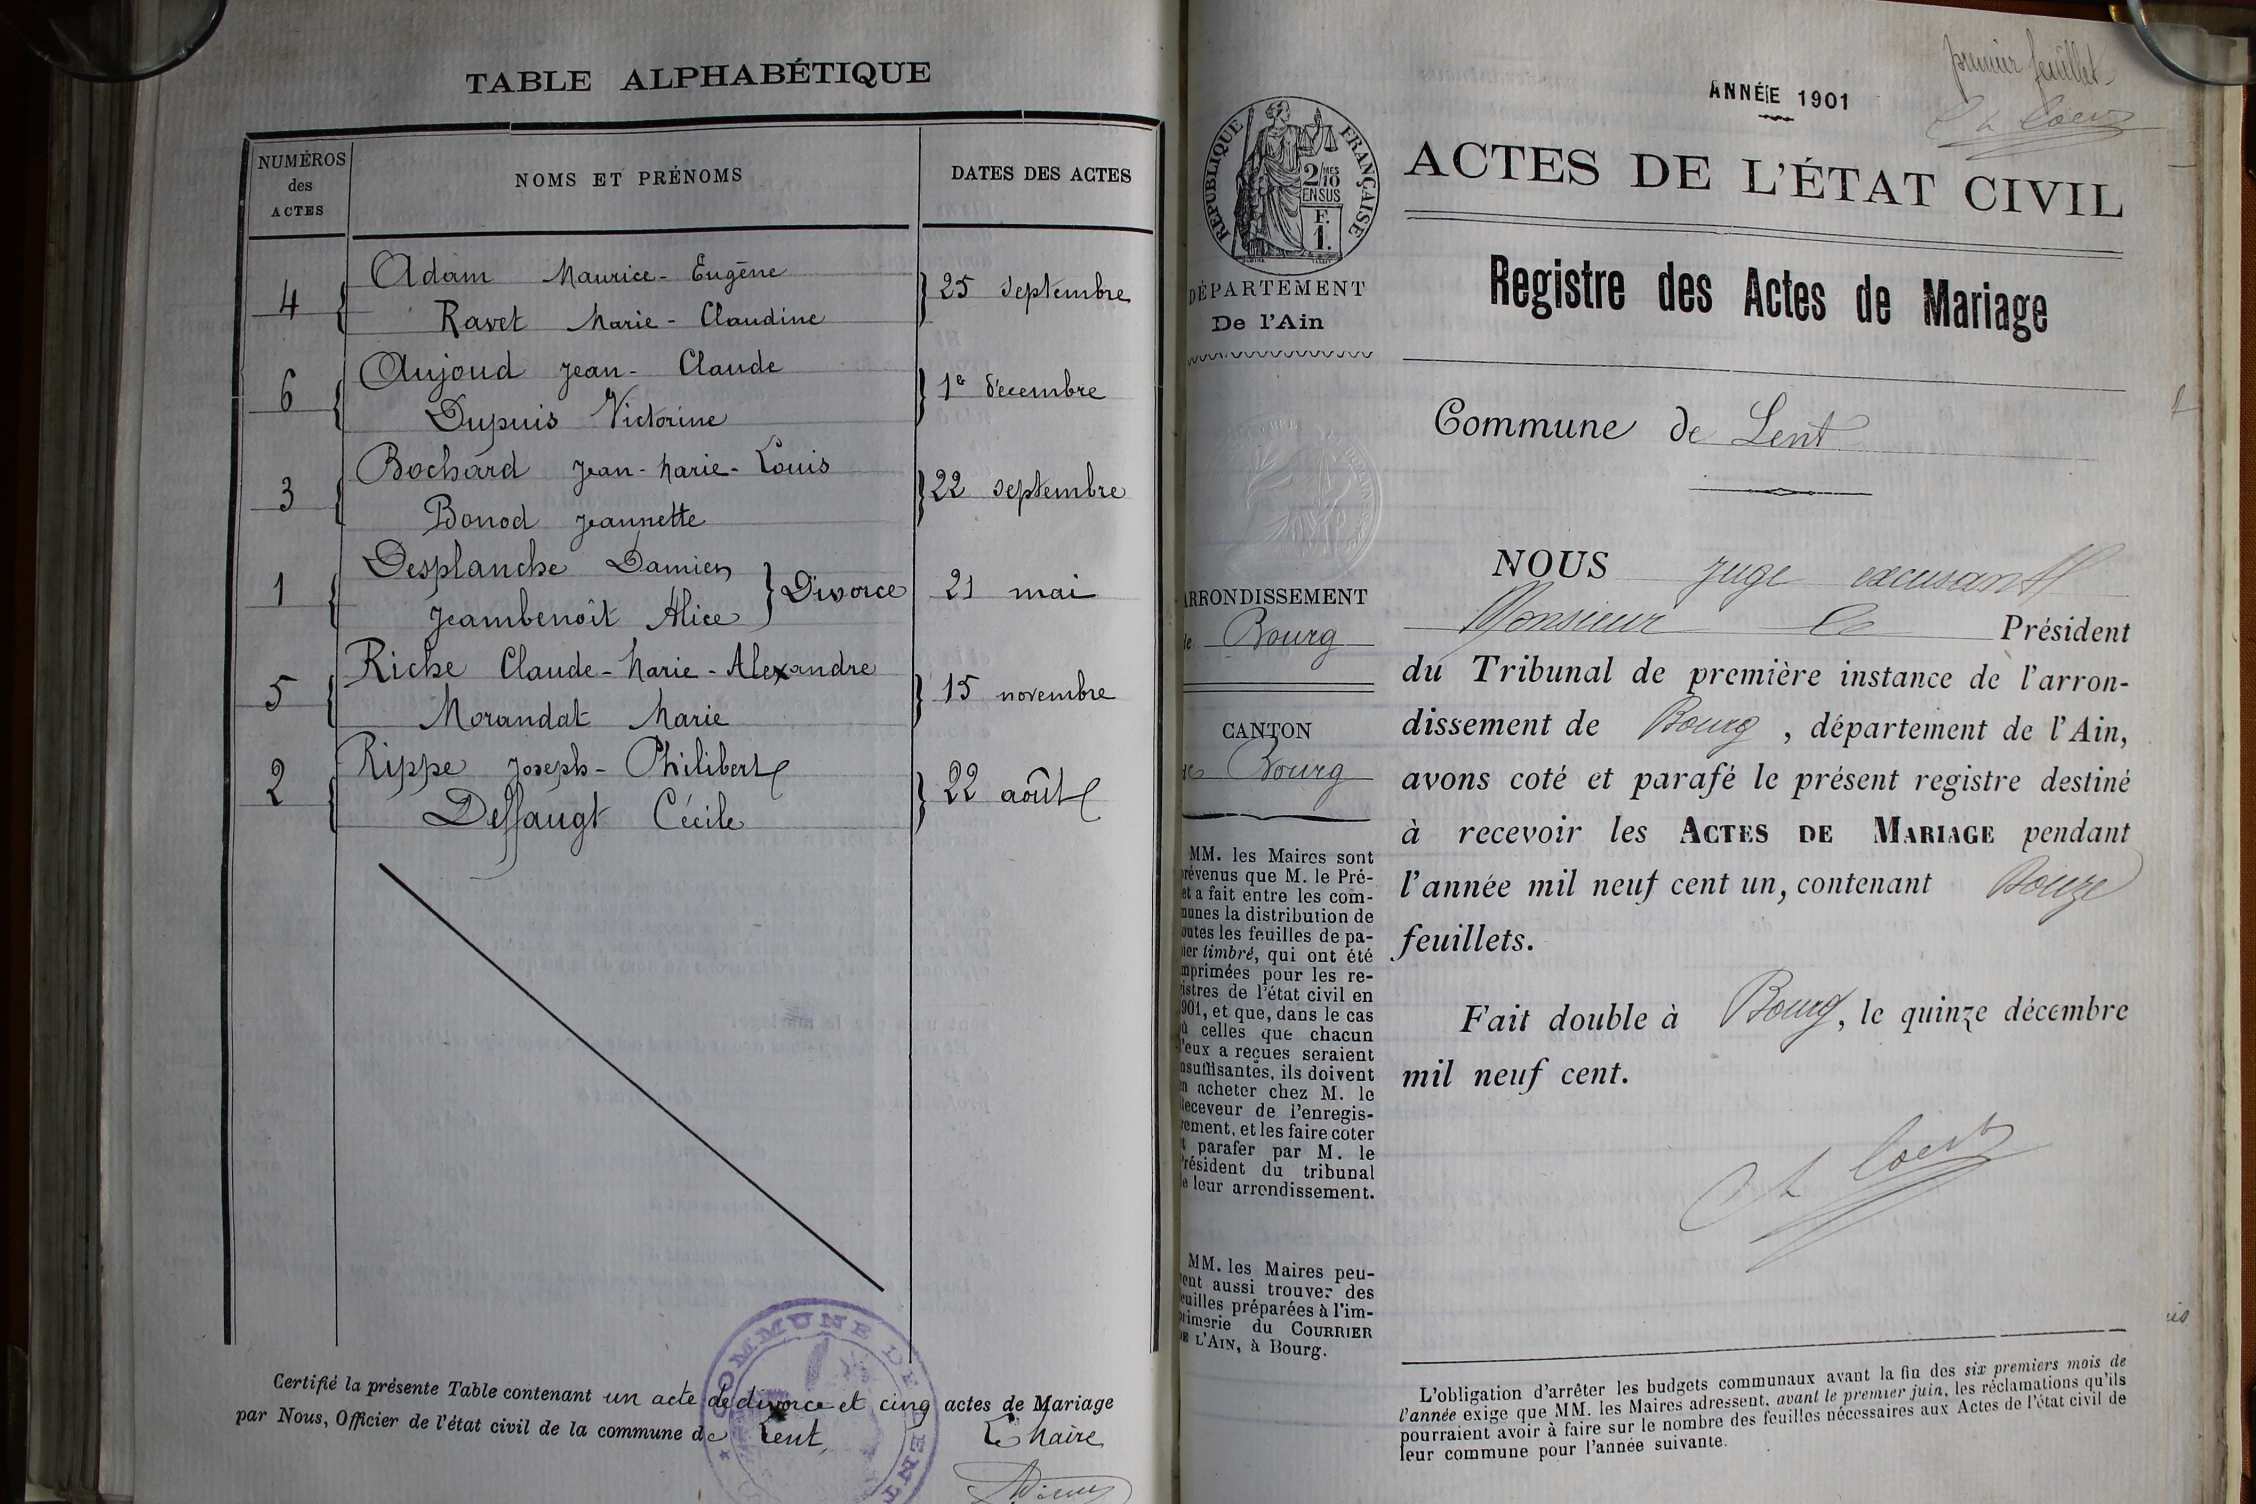 TABLE ALPHABÉTIQUE
NUMÉROS
des
ACTES
NOMS ET PRÉNOMS
DATES DES ACTES
4
Adam Maurice-Eugène
Ravet Marie-Claudine
25 septembre
6
Aujoud Jean-Claude
Dupuis Victorine
1er décembre
3
Bochard Jean-Marie-Louis
Bonod Jeannette
22 septembre
1
Desplanche Damien
Jeambenoît Alice
Divorce
21 mai
5
Riche Claude-Marie-Alexandre
Morandat Marie
15 novembre
2
Rippe Joseph-Philibert
Deffaugt Cécile
22 août
Certifié la présente Table contenant un acte de divorce et cinq actes de Mariage
par Nous, Officier de l'état civil de la commune de Lent
Le Maire
COMMUNE DE LENT
premier feuillet
ANNÉE 1901
RÉPUBLIQUE FRANÇAISE
2/10 MES
EN SUS
F.
1.
ACTES DE L'ÉTAT CIVIL
Registre des Actes de Mariage
DÉPARTEMENT
De l'Ain
Commune de Lent
ARRONDISSEMENT
de Bourg
CANTON
de Bourg
MM. les Maires sont
prévenus que M. le Pré-
et a fait entre les com-
munes la distribution de
toutes les feuilles de pa-
pier timbré, qui ont été
imprimées pour les re-
gistres de l'état civil en
1901, et que, dans le cas
où celles que chacun
d'eux a reçues seraient
insuffisantes, ils doivent
en acheter chez M. le
Receveur de l'enregis-
rement, et les faire coter
et parafer par M. le
Président du tribunal
de leur arrondissement.
MM. les Maires peu-
vent aussi trouver des
feuilles préparées à l'im-
primerie du COURRIER
DE L'AIN, à Bourg.
NOUS juge excusant
Monsieur le Président
du Tribunal de première instance de l'arron-
dissement de Bourg, département de l'Ain,
avons coté et parafé le présent registre destiné
à recevoir les ACTES DE MARIAGE pendant
l'année mil neuf cent un, contenant Douze
feuillets.
Fait double à Bourg, le quinze décembre
mil neuf cent.
L'obligation d'arrêter les budgets communaux avant la fin des six premiers mois de
l'année exige que MM. les Maires adressent, avant le premier juin, les réclamations qu'ils
pourraient avoir à faire sur le nombre des feuilles nécessaires aux Actes de l'état civil de
leur commune pour l'année suivante.